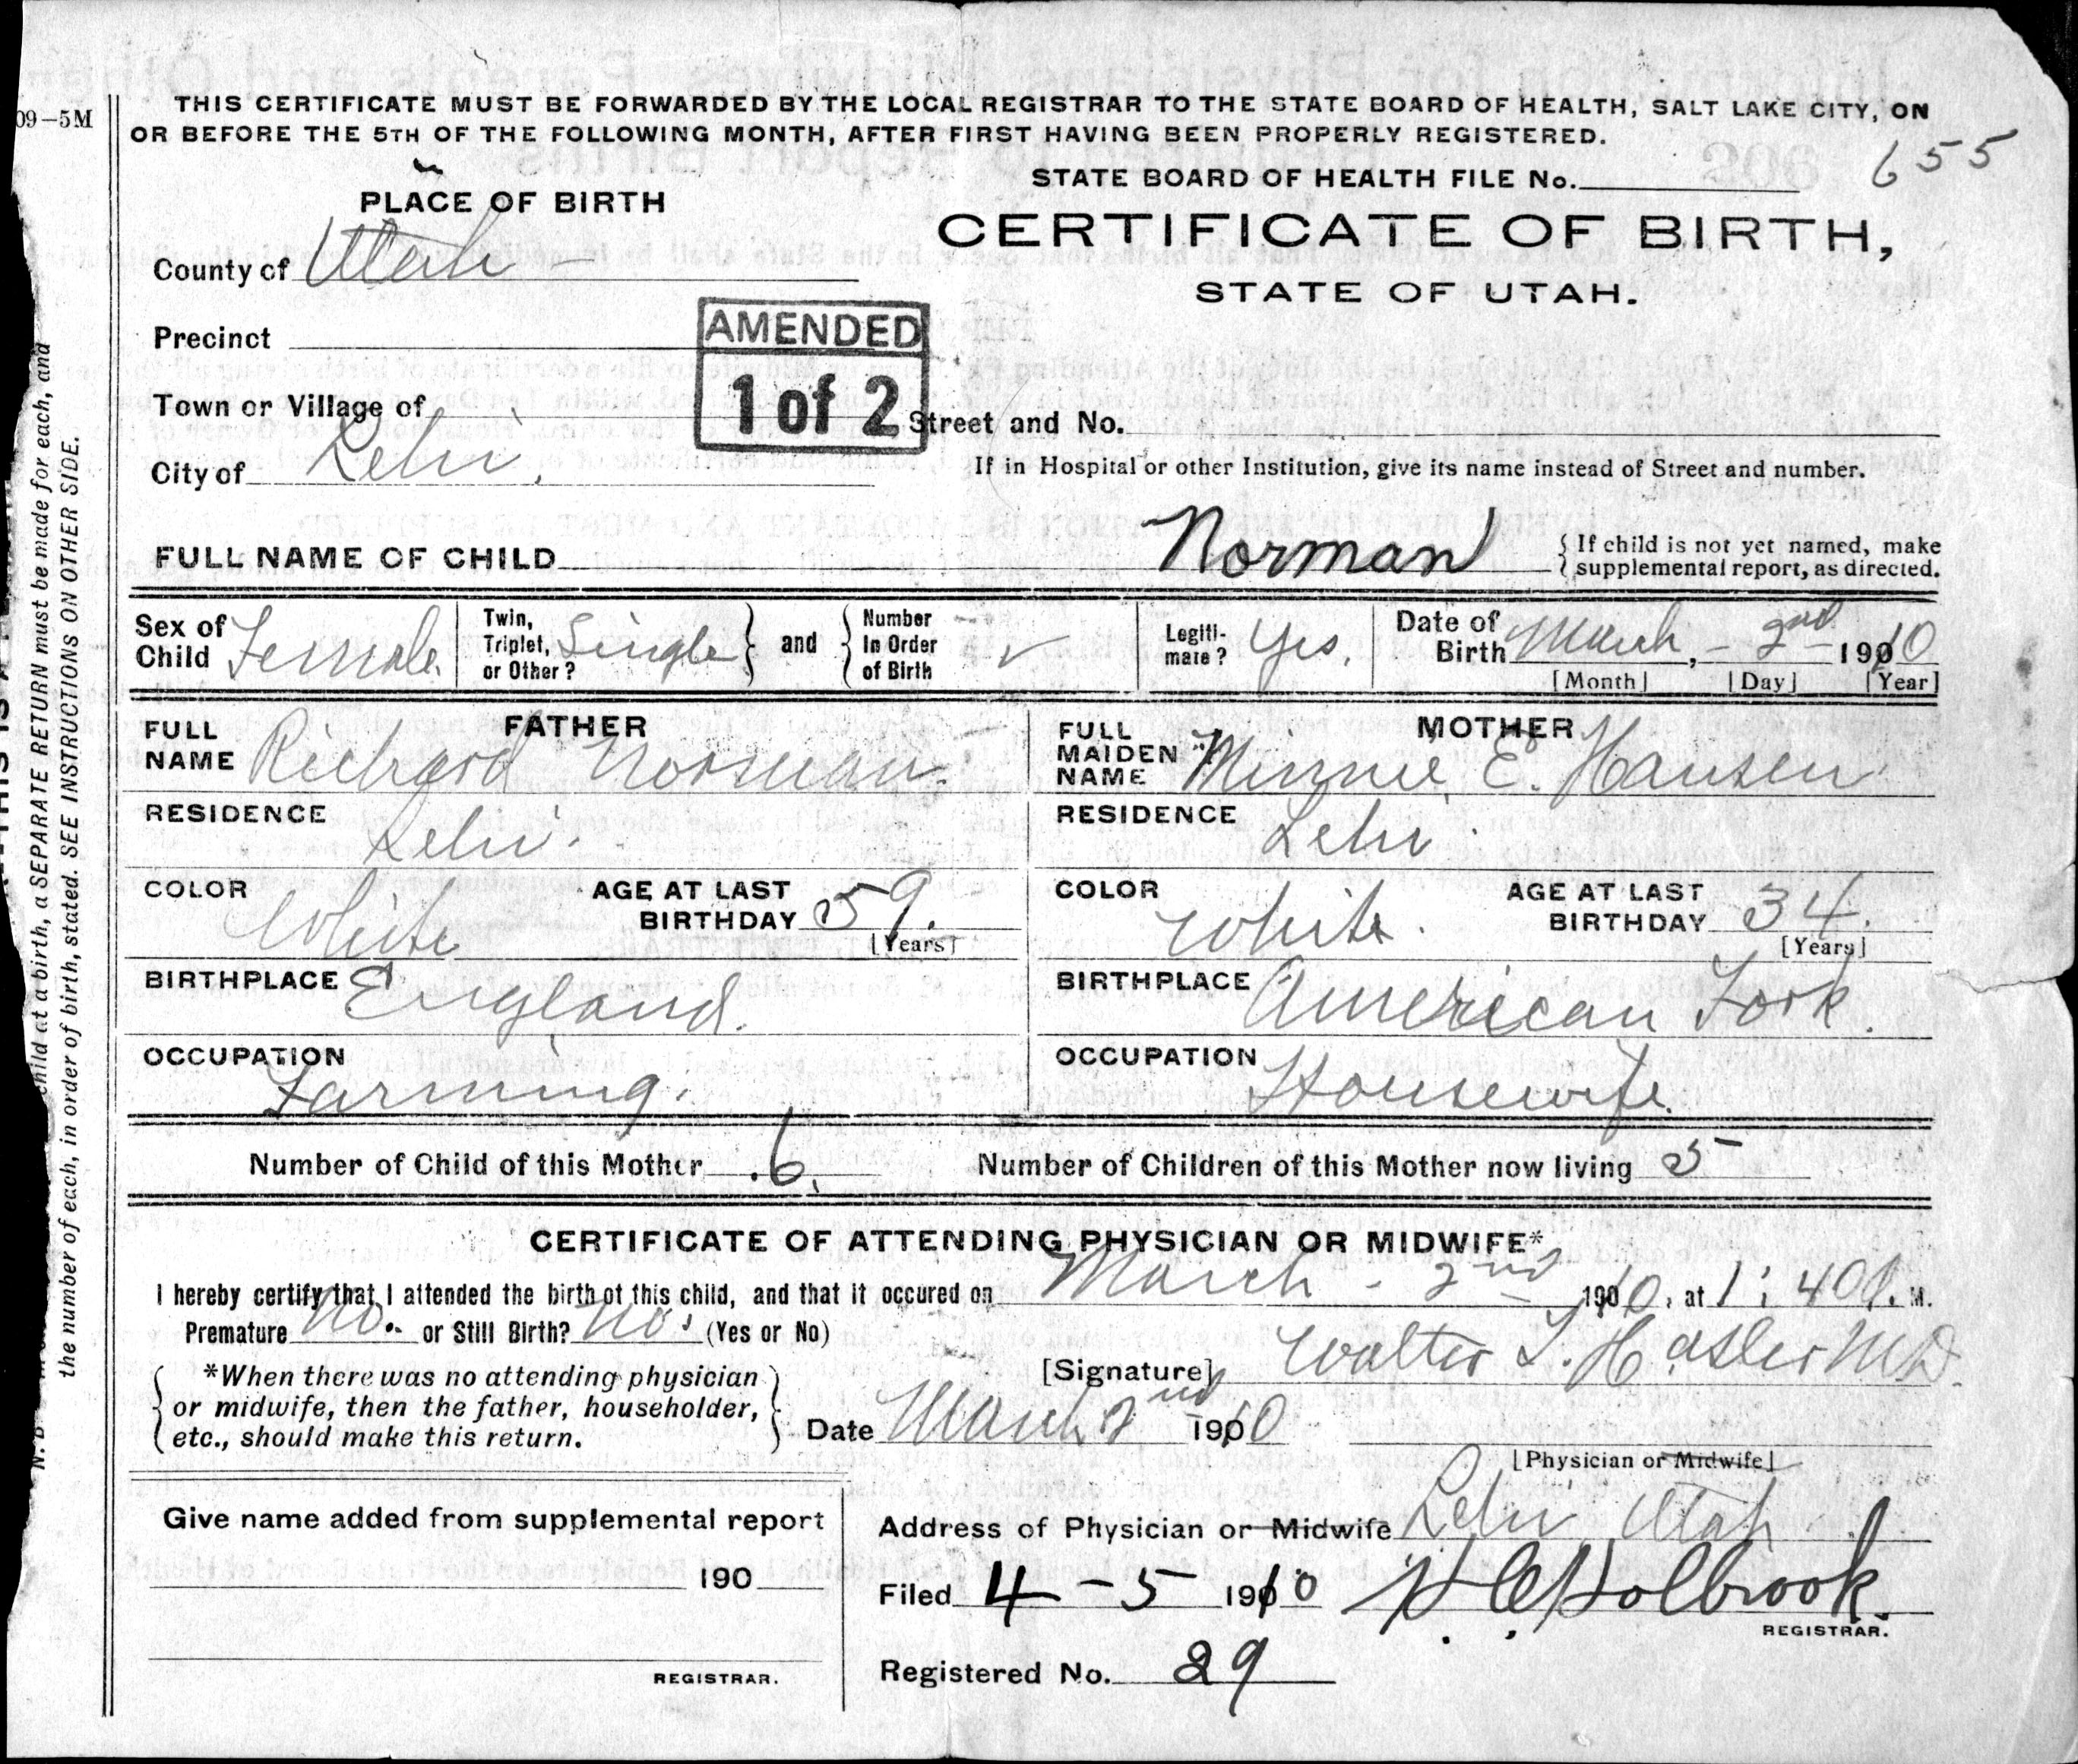 09-5M
THIS CERTIFICATE MUST BE FORWARDED BY THE LOCAL REGISTRAR TO THE STATE BOARD OF HEALTH, SALT LAKE CITY, ON
OR BEFORE THE 5TH OF THE FOLLOWING MONTH, AFTER FIRST HAVING BEEN PROPERLY REGISTERED.
655
STATE BOARD OF HEALTH FILE No.
PLACE OF BIRTH
CERTIFICATE OF BIRTH,
STATE OF UTAH.
County of Utah
Precinct
AMENDED
1 of 2
Town or Village of
Street and No.
City of Lehi
If in Hospital or other Institution, give its name instead of Street and number.
FULL NAME OF CHILD Norman { If child is not yet named, make
supplemental report, as directed.
Sex of Child Female Twin, Triplet, or Other? Single } and { Number In Order of Birth Legiti-mate? Yes. Date of Birth March, - 2nd - 1910
[Month] [Day] [Year]
FATHER
FULL NAME Richard Norman
MOTHER
FULL MAIDEN NAME Minnie E. Hansen
RESIDENCE Lehi
RESIDENCE Lehi
COLOR White AGE AT LAST BIRTHDAY 59. [Years]
COLOR White. AGE AT LAST BIRTHDAY 34. [Years]
BIRTHPLACE England.
BIRTHPLACE American Fork.
OCCUPATION Farming.
OCCUPATION Housewife.
Number of Child of this Mother 6. Number of Children of this Mother now living 5
CERTIFICATE OF ATTENDING PHYSICIAN OR MIDWIFE*
I hereby certify that I attended the birth of this child, and that it occured on March - 2nd 1910, at 1:40 P. M.
Premature No. or Still Birth? No. (Yes or No)
*When there was no attending physician
or midwife, then the father, householder,
etc., should make this return.
[Signature] Walter T. Hasler M.D.
Date March 2nd 1910
[Physician or Midwife]
Give name added from supplemental report
190
REGISTRAR.
Address of Physician or Midwife Lehi Utah
Filed 4-5 1910 Holbrook
REGISTRAR.
Registered No. 29
child at a birth, a SEPARATE RETURN must be made for each, and
the number of each, in order of birth, stated. SEE INSTRUCTIONS ON OTHER SIDE.